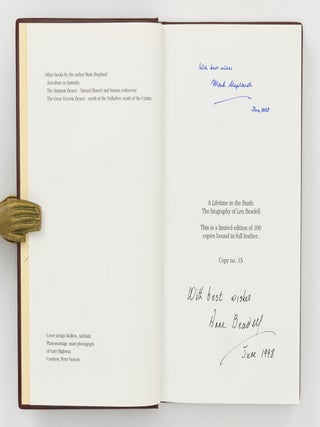 Other books by the author Mark Shephard
Aviculture in Australia
The Simpson Desert – Natural History and human endeavour
The Great Victoria Desert – north of the Nullarbor, south of the Centre
Cover design Moffen, Adelaide
Photomontage: main photograph
of Gary Highway,
Courtesy, Peter Vernon.
With best wishes
Mark Shephard
June 1998
A Lifetime in the Bush:
The biography of Len Beadell
This is a limited edition of 100
copies bound in full leather.
Copy no. 15
With best wishes
Anne Beadell
June 1998